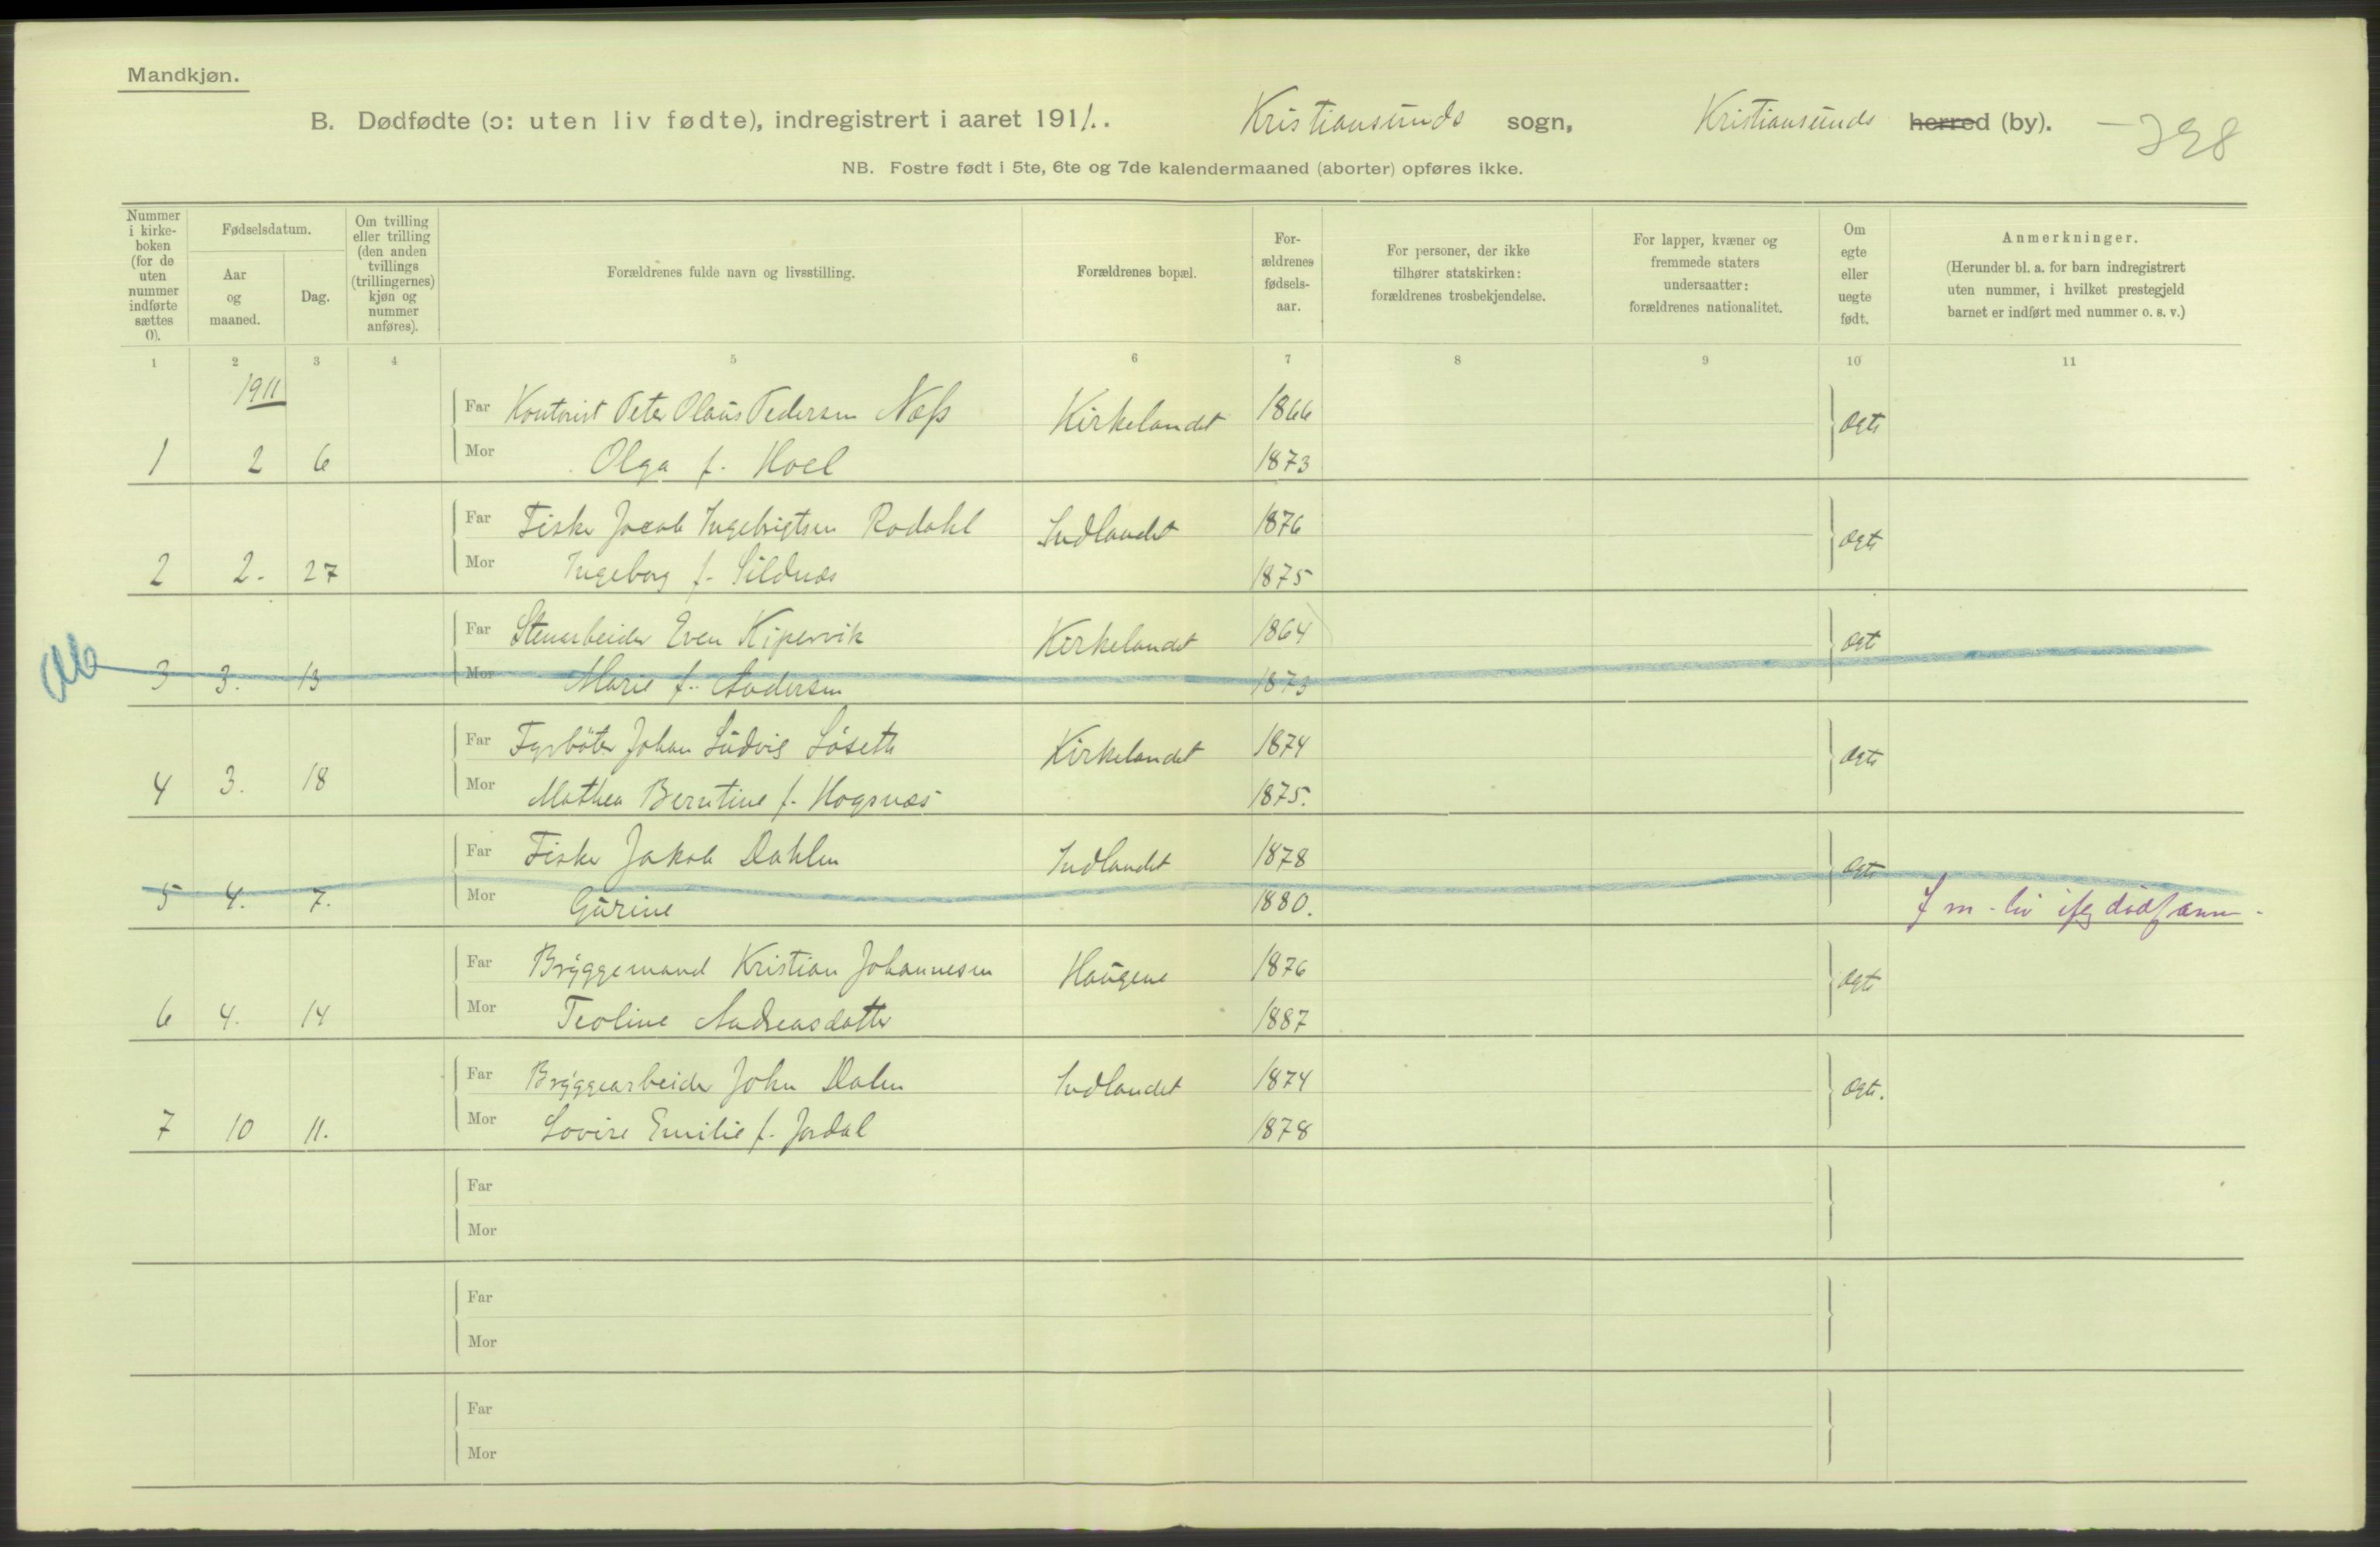 Mandkjøn.
B. Dødfødte (ɔ: uten liv fødte), indregistrert i aaret 1911. Kristiansunds sogn, Kristiansunds herred (by).
NB. Fostre født i 5te, 6te og 7de kalendermaaned (aborter) opføres ikke.
Nummer i kirke-boken (for de uten nummer indførte sættes 0).
Fødselsdatum.
Aar og maaned.
Dag.
Om tvilling eller trilling (den anden tvillings (trillingernes) kjøn og nummer anføres).
Forældrenes fulde navn og livsstilling.
Forældrenes bopæl.
For-ældrenes fødsels-aar.
For personer, der ikke tilhører statskirken: forældrenes trosbekjendelse.
For lapper, kvæner og fremmede staters undersaatter: forældrenes nationalitet.
Om egte eller uegte født.
Anmerkninger.
(Herunder bl. a. for barn indregistrert uten nummer, i hvilket prestegjeld barnet er indført med nummer o. s. v.)
1 2 3 4 5 6 7 8 9 10 11
1911
Far Kontorist Peter Olaus Pedersen Næss Kirkelandet 1866 ægte
1 2 6 Mor Olga f. Hoel 1873
Far Fisker Jacob Ingebrigtsen Rodahl Indlandet 1876 ægte
2 2. 27 Mor Ingeborg f. Sildnæs 1875
Far Stenarbeider Even Kipervik Kirkelandet 1864 ægt
3 3. 13 Mor Marie f. Andersen 1873
Far Fyrbøter Johan Ludvig Løseth Kirkelandet 1874 ægte
4 3. 18 Mor Mathea Berntine f. Hogsnæs 1875.
Far Fisker Jakob Dahlen Indlandet 1878 ægte
5 4. 7. Mor Gurine 1880.
Far Bryggemand Kristian Johannesen Haugene 1876 ægte
6 4. 14 Mor Teoline Andreasdatter 1887
Far Bryggearbeider John Dalen Indlandet 1874 ægte.
7 10 11. Mor Lovise Emilie f. Jordal 1878
Far
Mor
Far
Mor
Far
Mor